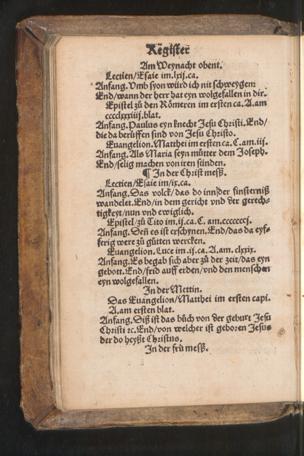 Register
Am Weynacht obent.
Lectien/Esaie im.lxij.ca.
Anfang. Vmb syon würd ich nit schweygen:
End/wann der herr hat eyn wolgefallen in dir.
Epistel zů den Römeren im ersten ca. A.am
ccccxxxiiij.blat.
Anfang. Paulus eyn knecht Jesu Christi. End/
die da berüffen sind von Jesu Christo.
Euangelion. Matthei im ersten ca. C.am.iij.
Anfang. Als Maria seyn můtter dem Joseph.
End/selig machen von iren sünden.
¶ In der Christ mesß.
Lectien/Esaie im/ix.ca.
Anfang. Das volck/das do inn der finsterniß
wandelet. End/in dem gericht vnd der gerech-
tigkeyt/nun vnd ewiglich.
Epistel/zů Tito im.ij.ca. C. am.
Anfang. Deñ es ist erschynen. End/das da eyf-
ferig were zů gůtten wercken.
Euangelion. Luce im.ij.ca. A.am. clxxix.
Anfang. Es begab sich aber zů der zeit/das eyn
gebott. End/frid auff erden/vnd den menschen
eyn wolgefallen.
In der Mettin.
Das Euangelion/Matthei im ersten capi.
A.am ersten blat.
Anfang. Diß ist das bůch von der geburt Jesu
Christi ꝛc. End/von welcher ist geboren Jesus
der do heyßt Christus.
In der frů mesß.